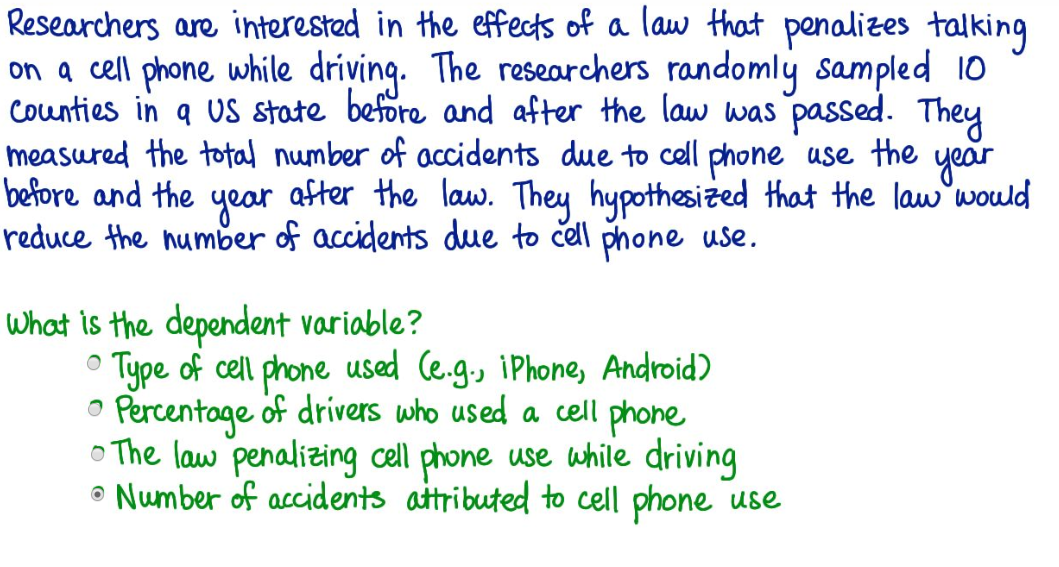 Researchers are interested in the effects of a law that penalizes talking
on a cell phone while driving. The researchers randomly sampled 10
counties in a US state before and after the law was passed. They
measured the total number of accidents due to cell phone use the year
before and the year after the law. They hypothesized that the law would
reduce the number of accidents due to cell phone use.
What is the dependent variable?
Type of cell phone used (e.g., iPhone, Android)
Percentage of drivers who used a cell phone
The law penalizing cell phone use while driving
Number of accidents attributed to cell phone use